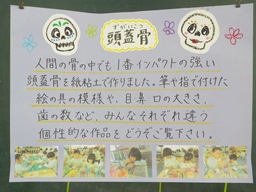 ずがいこつ
頭蓋骨
人間の骨の中でも1番インパクトの強い
頭蓋骨を紙粘土で作りました。筆や指で付けた
絵の具の模様や、目鼻口の大きさ、
歯の数など、みんなそれぞれ違う
個性的な作品をどうぞご覧下さい。